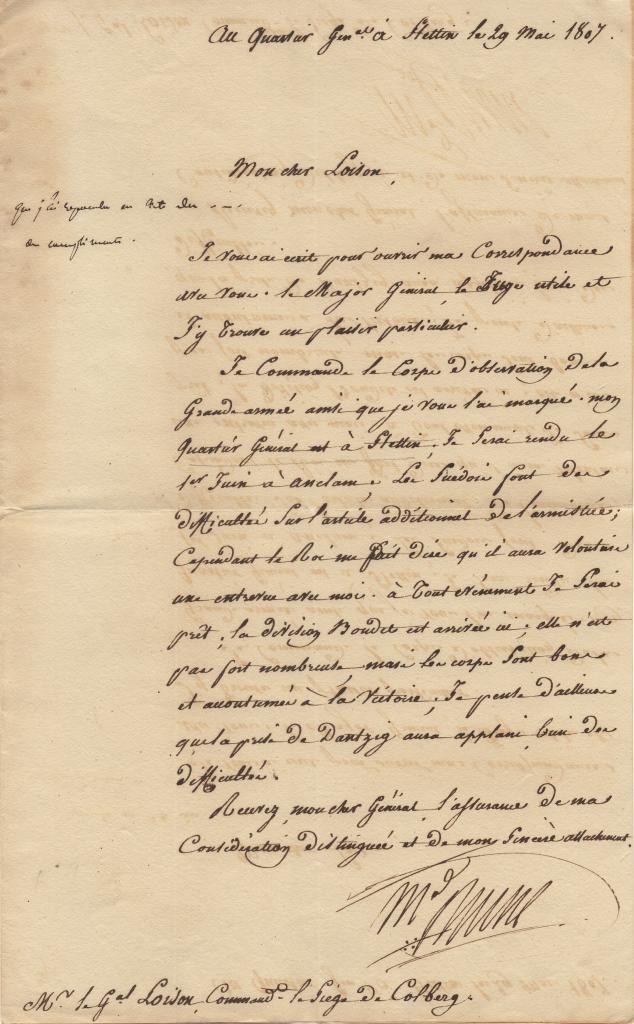 Au Quartier Gen.al à Stettin le 29 Mai 1807.
Mon cher Loison,
que j'ai repondu en 
des compliments.
Je vous ai écrit pour ouvrir ma Correspondance
avec vous. le Major Général le Juge utile et
J'y trouve un plaisir particulier.
Je Commande le Corps d'observation de la
Grande armée ainsi que je vous l'ai marqué. mon
Quartier Général est à Stettin. Je serai rendu le
1er Juin à Anclam. Les Suédois font des
difficultés sur l'article additionnel de l'armistice;
Cependant le Roi me fait dire qu'il aura volontiers
une entrevue avec moi. à Tout évènement Je Serai
prêt, la division Boudet est arrivée ici; elle n'est
pas fort nombreuse, mais les corps sont bons
et accoutumés à la Victoire. Je pense d'ailleurs
que la prise de Dantzig aura applani bien des
difficultés.
Recevez, mon cher Général, l'assurance de ma
Considération distinguée et de mon sincère attachement.
M.d Brune
Mr. le G.al Loison, Command.t le Siège de Colberg.